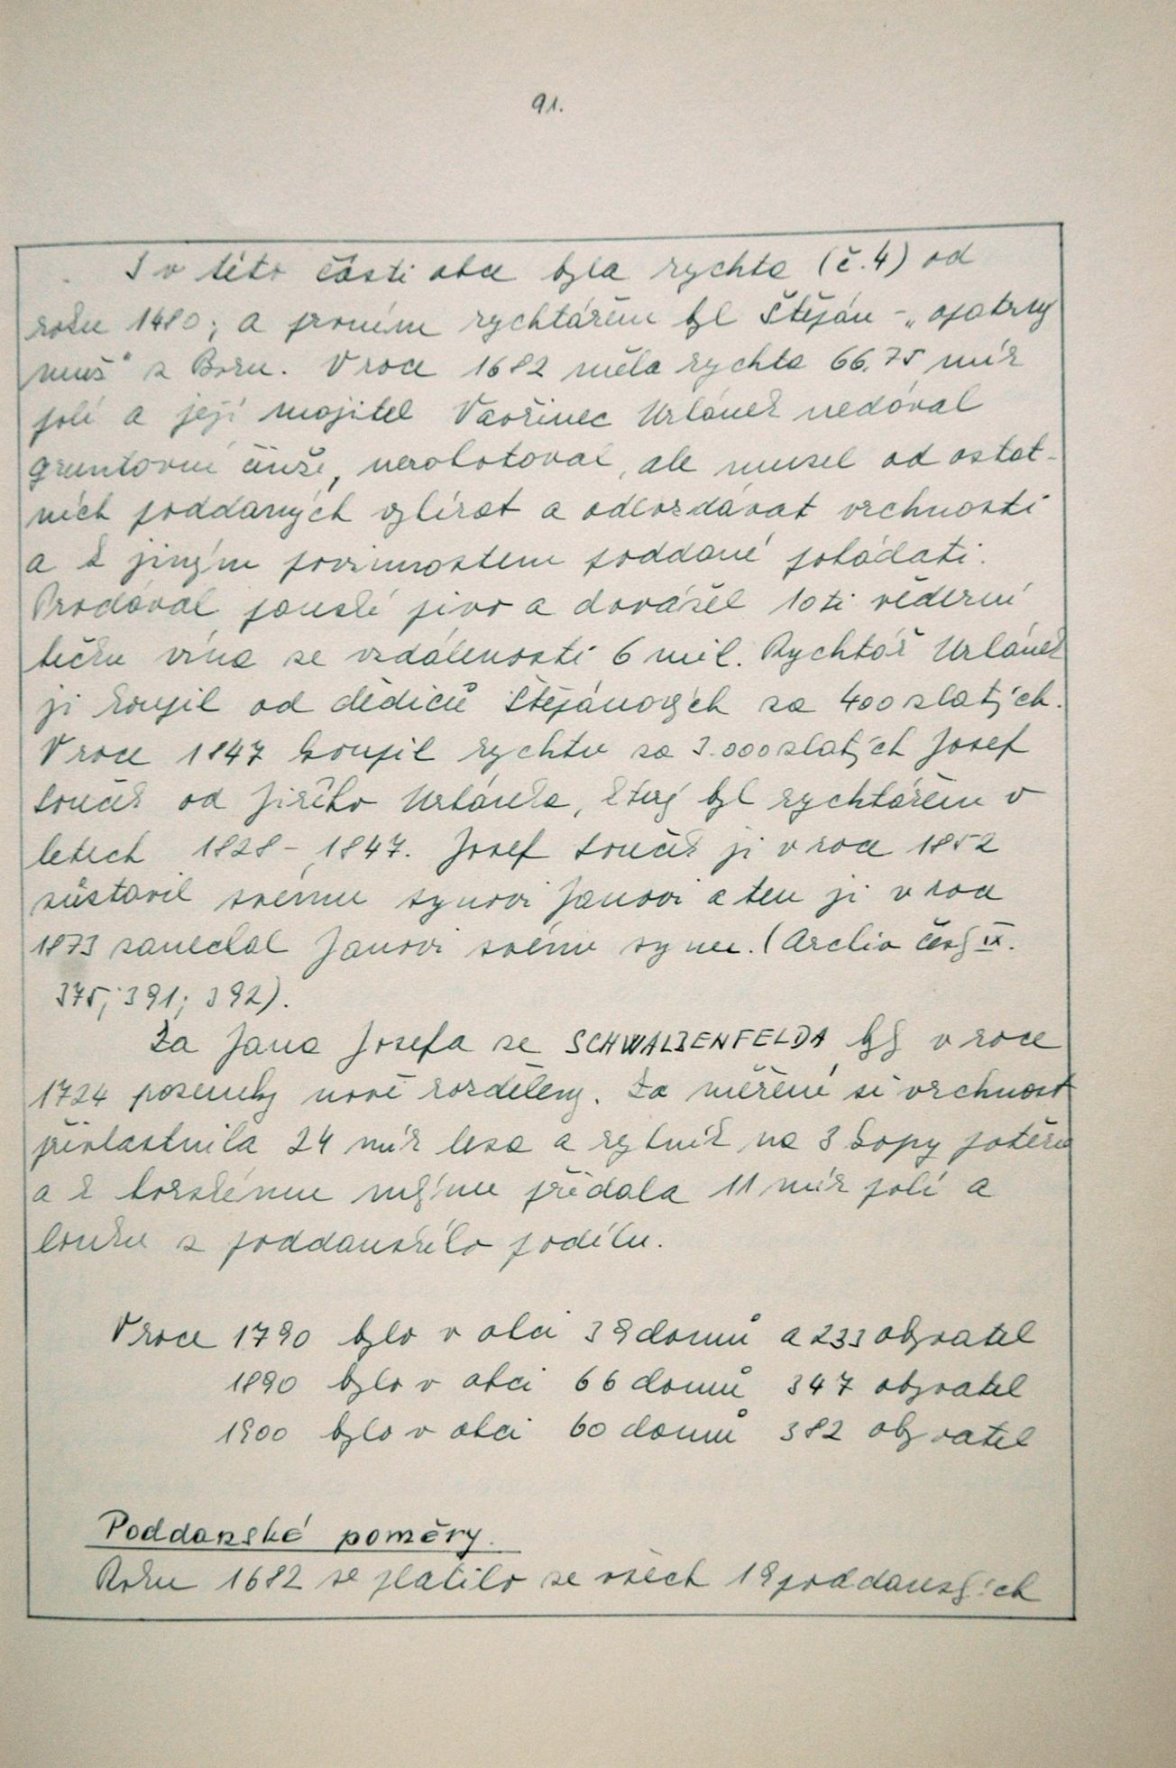 91.
I v této části obce byla rychta (č.4) od
roku 1480; a prvním rychtářem byl Štěpán - „opatrný
muž" z Boru. V roce 1682 měla rychta 66,75 měr
polí a její majitel Vavřinec Urbánek nedával
gruntovní činži, nerobotoval, ale musel od ostat-
ních poddaných vybírat a odevzdávat vrchnosti
a k jiným povinnostem poddané pobádati.
Prodával panské pivo a dovážel 10ti věderní
bečku vína ze vzdálenosti 6 mil. Rychtář Urbánek
ji koupil od dědiců Štěpánových za 400 zlatých.
V roce 1847 koupil rychtu za 3.000 zlatých Josef
Souček od Jiřího Urbánka, který byl rychtářem v
letech 1828 - 1847. Josef Souček ji v roce 1852
zůstavil svému synovi Janovi a ten ji v roce
1873 zanechal Janovi svému synu. (Archiv český IX.
375; 391; 392).
Za Jana Josefa ze SCHWALZENFELDA byly v roce
1724 pozemky nově rozděleny. Za měření si vrchnost
přivlastnila 24 měr lesa a rybník na 3 kopy potěru
a k borskému mlýnu přidala 11 měr polí a
louku z poddanského podílu.
V roce 1790 bylo v obci 39 domů a 233 obyvatel
1890 bylo v obci 66 domů 347 obyvatel
1900 bylo v obci 60 domů 382 obyvatel
Poddanské poměry.
Roku 1682 se platilo ze všech 19 poddanských